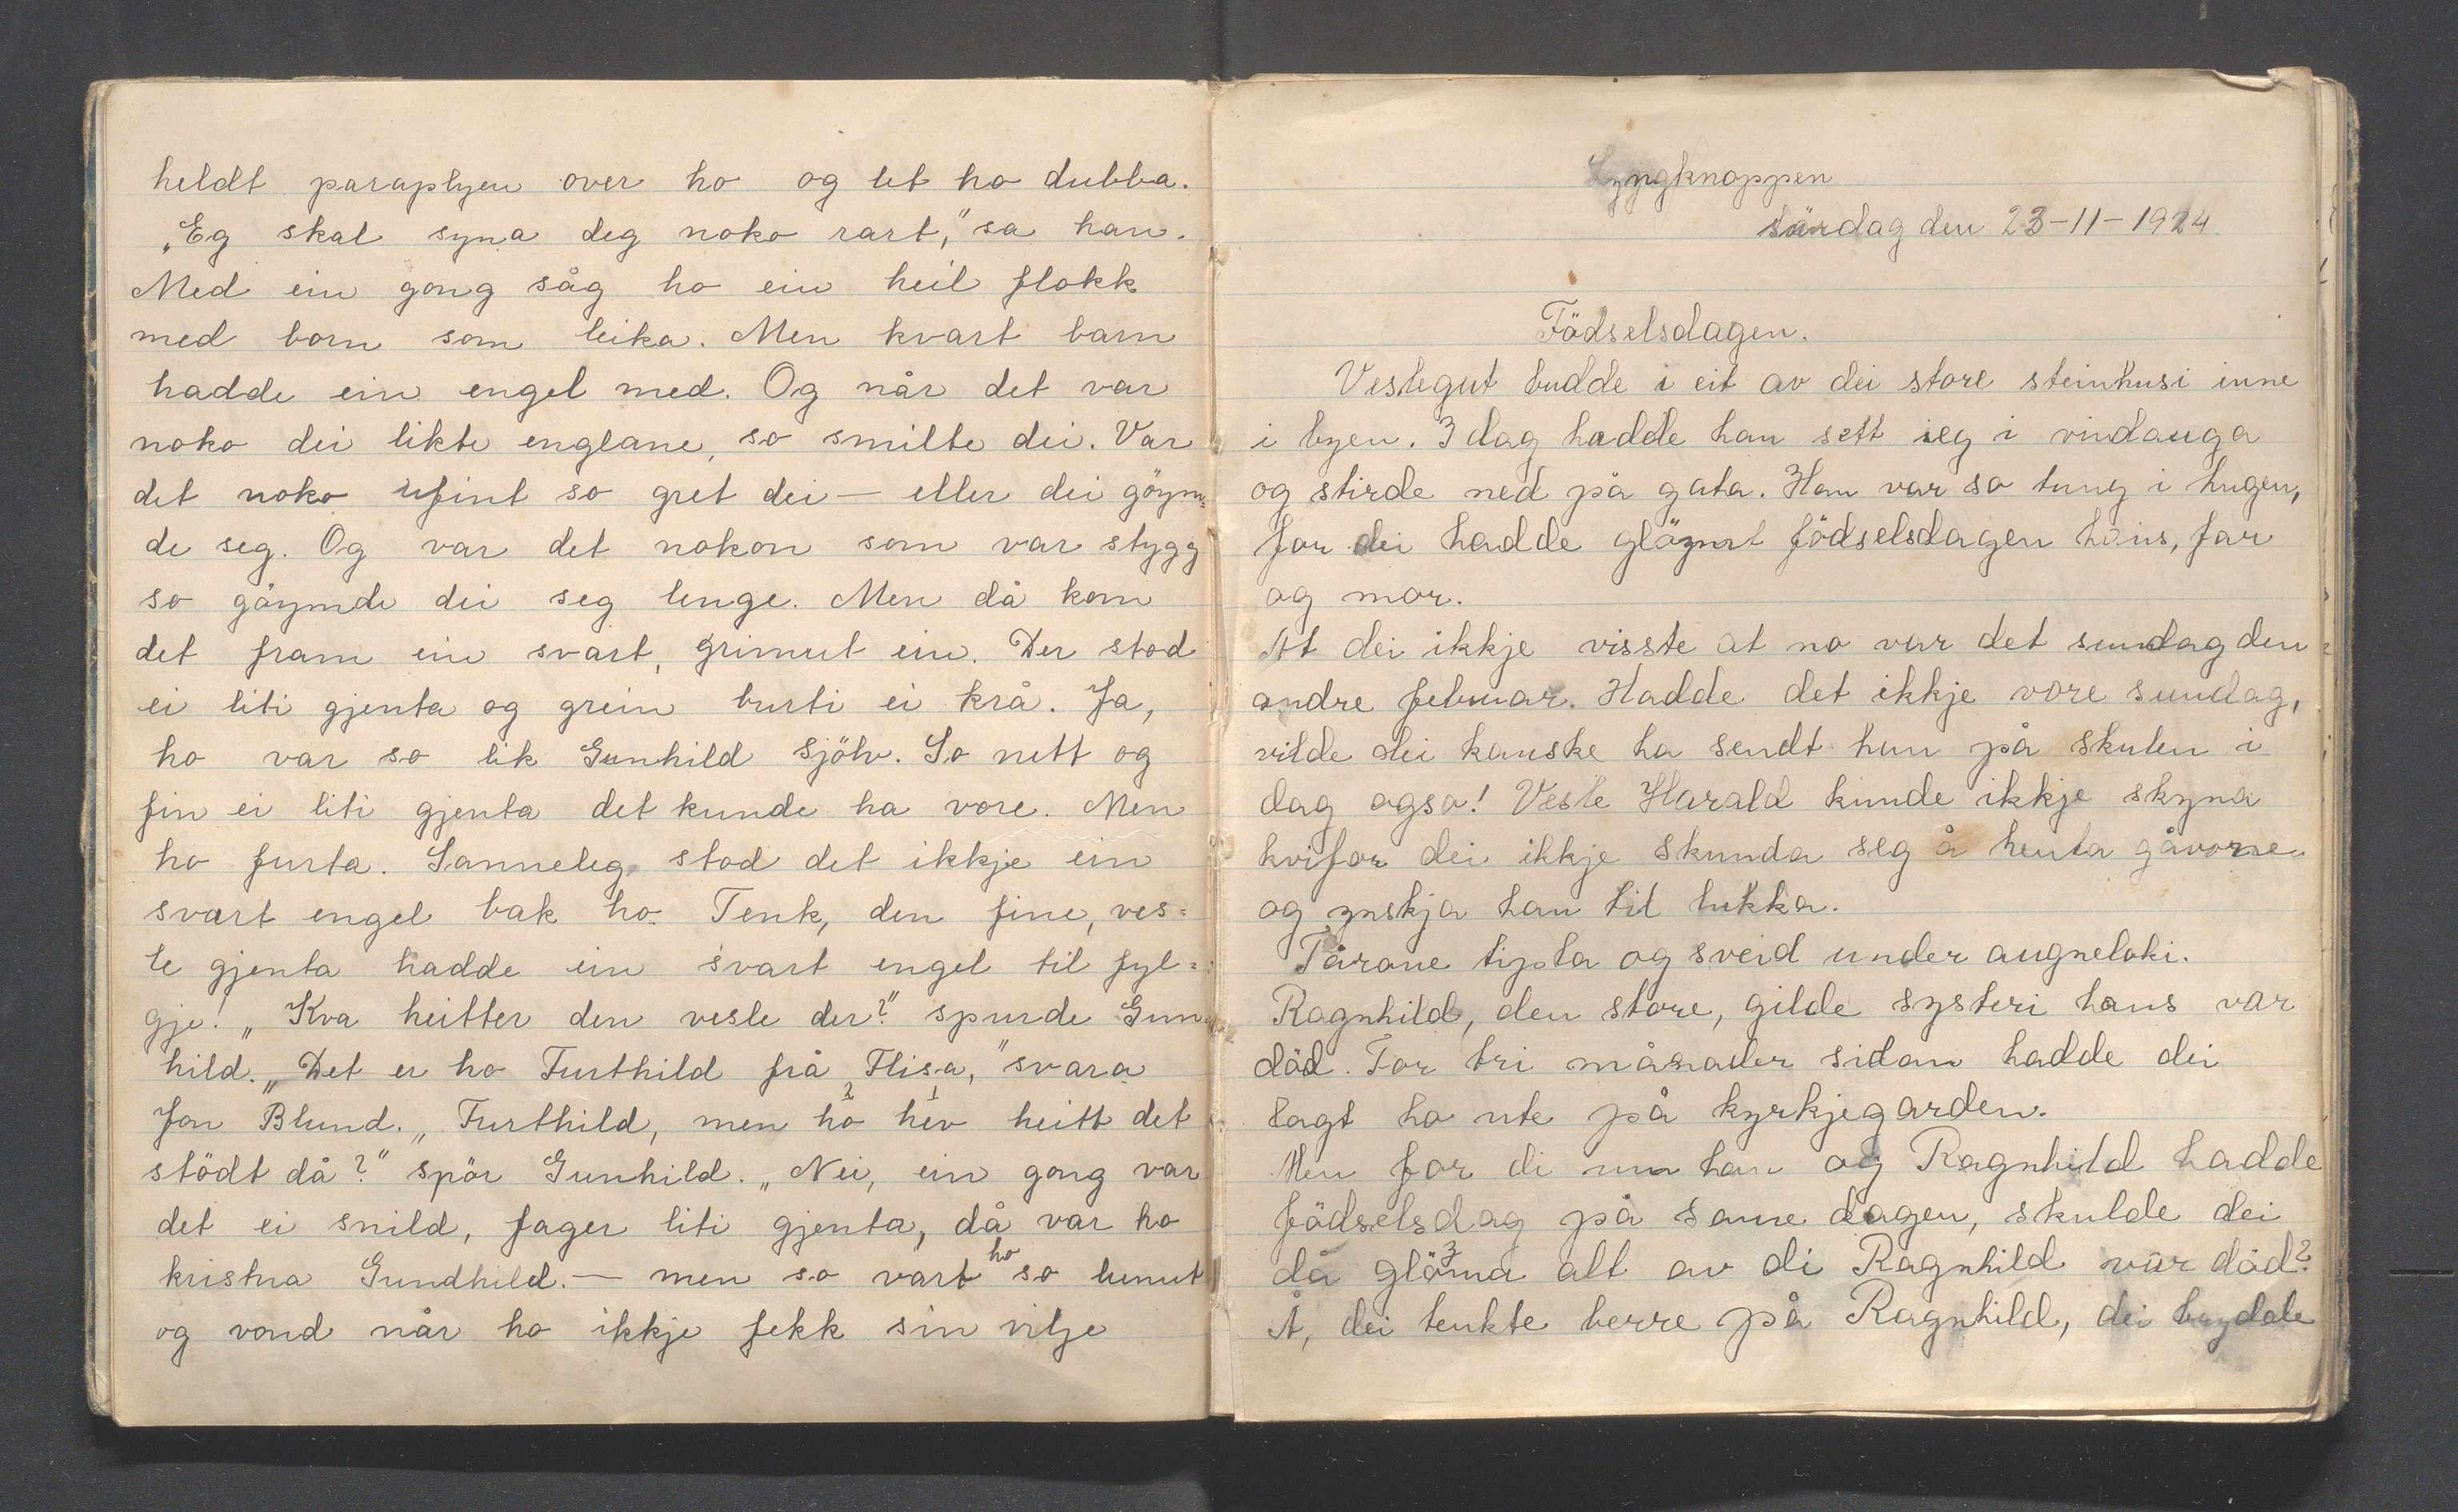 heldt paraplyen over ho og let ho dubba.
„Eg skal syna deg noko rart,” sa han.
Med ein gong såg ho ein heil flokk
med born som leika. Men kvart barn
hadde ein engel med. Og når det var
noko dei likte englane, so smilte dei. Var
det noko ufint so gret dei — eller dei göym=
de seg. Og var det nokon som var stygg
so göymde dei seg lenge. Men då kom
det fram ein svart, grimut ein. Der stod
ei liti gjenta og grein burti ei krå. Ja,
ho var so lik Gunhild sjölv. So nett og
fin ei liti gjenta det kunde ha vore. Men
ho furta. Sanneleg stod det ikkje ein
svart engel bak ho. Tenk, den fine, ves=
le gjenta hadde ein svart engel til fyl=
gje! „Kva heitter den vesle der?” spurde Gun
hild. „Det er ho Furthild frå Flisa,” svara
Jon Blund. „Furthild, men ho hev heitt det
stödt då?” spör Gunhild. „Nei, ein gong var
det ei snild, fager liti gjenta, då var ho
kristna Gundhild. — men so vart ho so lunut
og vond når ho ikkje fekk sin vilje
Lyngknoppen
sundag den 23-11-1924
Födselsdagen.
Veslegut budde i eit av dei store steinhusi inne
i byen. I dag hadde han sett seg i vindauga
og stirde ned på gata. Han var so tung i hugen,
for dei hadde glöymt födselsdagen hans, far
og mor.
At dei ikkje visste at no var det sundag den
andre februar. Hadde det ikkje vore sundag,
vilde dei kanske ha sendt han på skulen i
dag ogso! Vesle Harald kunde ikkje skyna
kvifor dei ikkje skunda seg å henta gåvorne
og ynskja han til lukka.
Tårone tipla og sveid under augneloki.
Ragnhild, den store, gilde systeri hans var
död. For tri månader sidan hadde dei
lagt ho ute på kyrkjegarden.
Men for di um han og Ragnhild hadde
födselsdag på same dagen, skulde dei
då glöyma alt av di Ragnhild var död?
Å, dei tenkte berre på Ragnhild, dei brydde